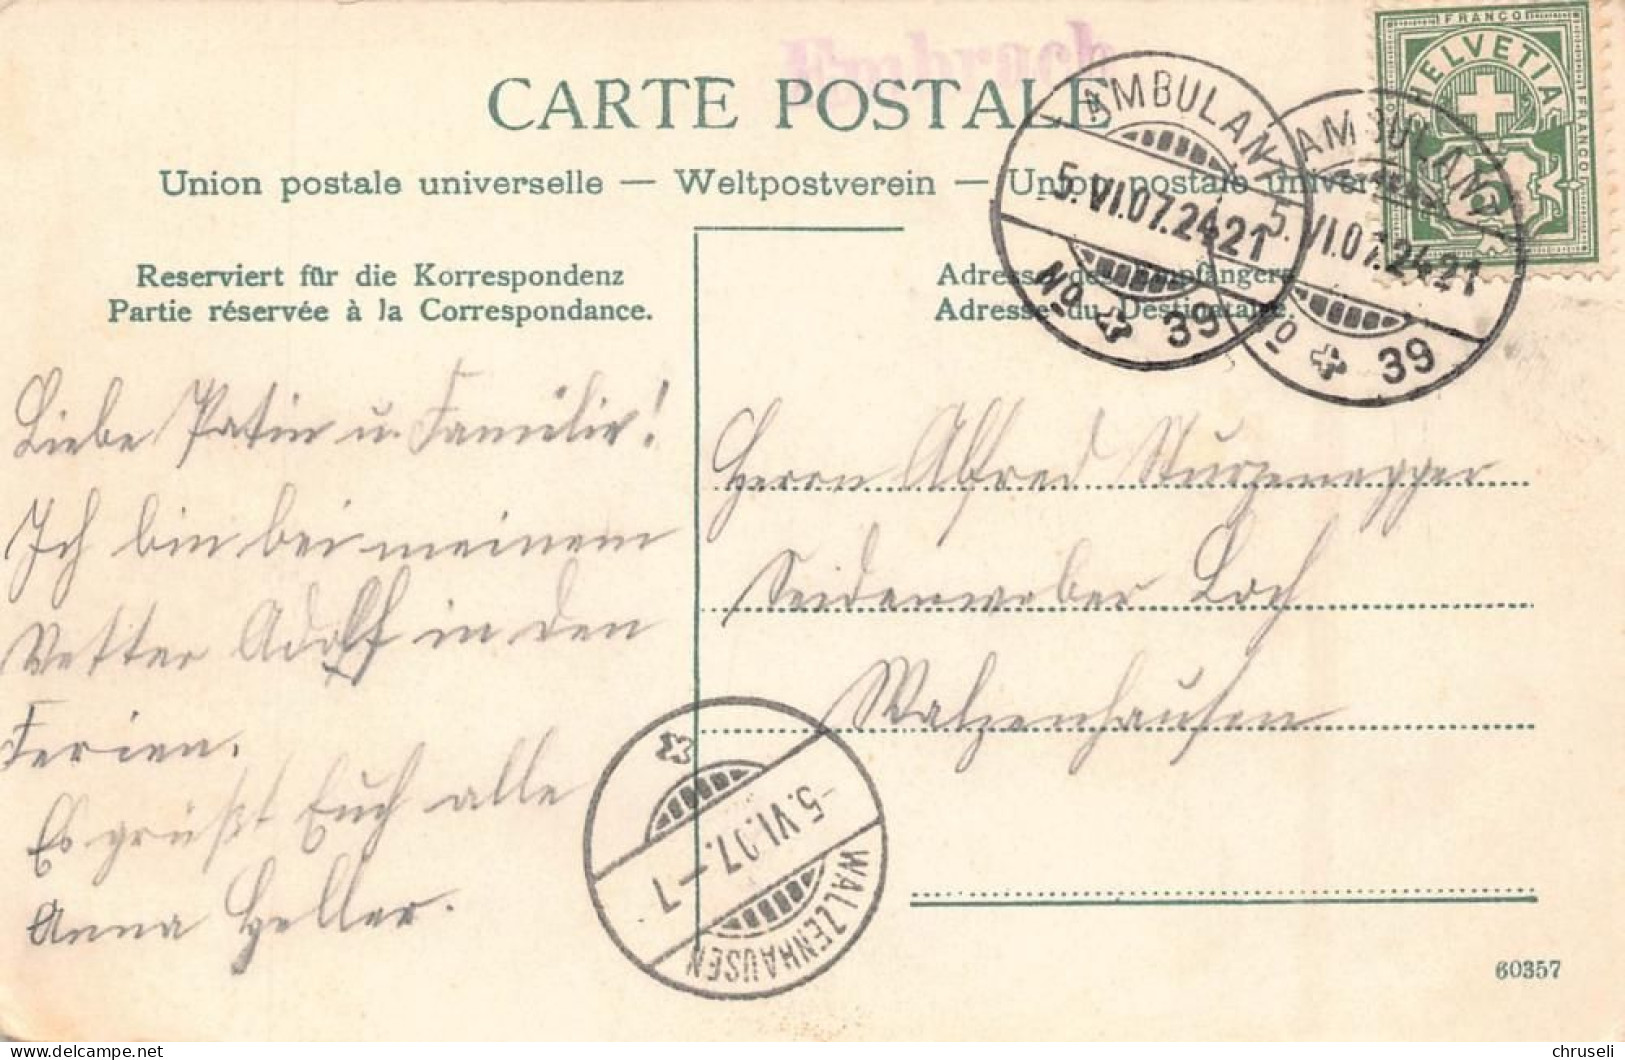 Embrach
CARTE POSTALE
Union postale universelle — Weltpostverein — Union postale universelle
Reserviert für die Korrespondenz
Partie réservée à la Correspondance.
Adresse des Empfängers
Adresse du Destinataire.
FRANCO
HELVETIA
FRANCO
5
AMBULANT
5.VI.07.2421
No 39
AMBULANT
5.VI.07.2421
No 39
Liebe Patin u. Familie!
Ich bin bei meinem
Vetter Adolf in den
Ferien.
Es grüßt Euch alle
Anna Heller.
Herrn Alfred Sturzenegger
Seidenweber Loch
Walzenhausen
-5.VI.07.-7
WALZENHAUSEN
60357
chruseli